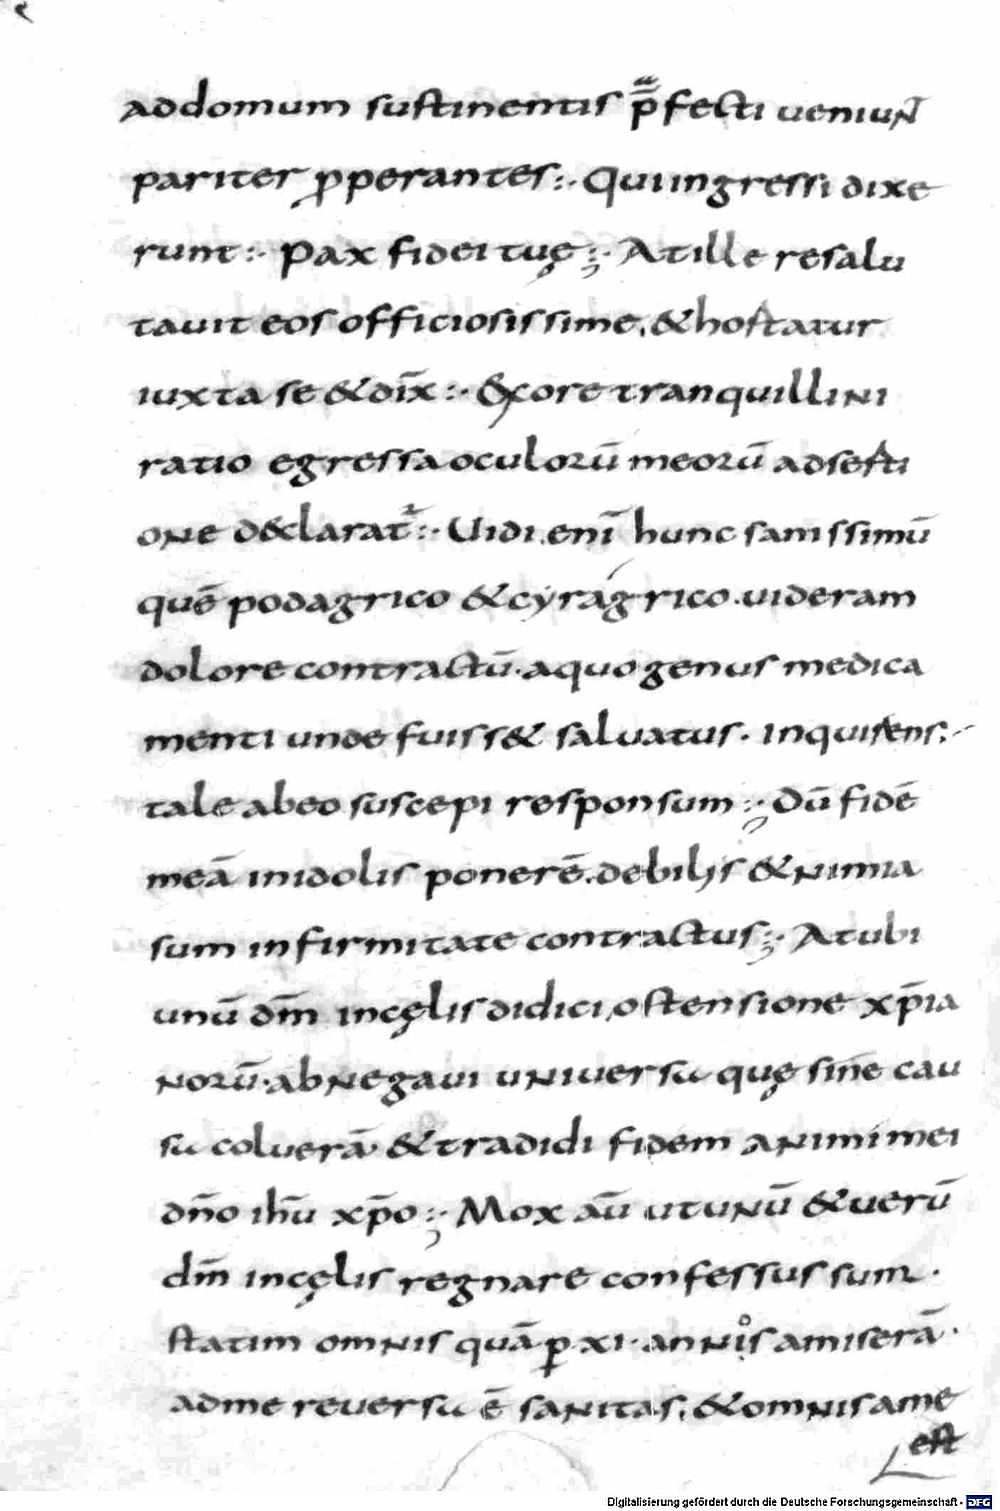 addomum sustinentis p̄fecti ueniunt
pariter ꝓperantes:· Qui ingressi dixe
runt:· Pax fidei tuę;· At ille resalu
tauit eos officiosissime, & hortatur
iuxta se & dix̄:· Ex ore tranquillini
ratio egressa oculorū meorū adserti
one d&clarat᷑:· Uidi enī hunc sanissimū
quē podagrico & cyragrico·uideram
dolore contractū·a quo genus medica
menti unde fuiss& saluatus· inquirens;·
tale ab eo suscepi responsum;· Dū fidē
meā in idolis ponerē·debilis & nimia
sum infirmitate contractus;· At ubi
unū dm̄ in cęlis didici, ostensione xp̄ia
norū·abnegaui uniuersa quę sine cau
sa coluerā·& tradidi fidem animi mei
dn̄o ihū xp̄o;· Mox aū ut unū & uerū
dm̄ in cęlis regnare confessus sum·
statim omnis quā ꝑ·xi·annis amiserā·
ad me reuersa ē sanitas; & omnis a me
est
Digitalisierung gefördert durch die Deutsche Forschungsgemeinschaft - DFG